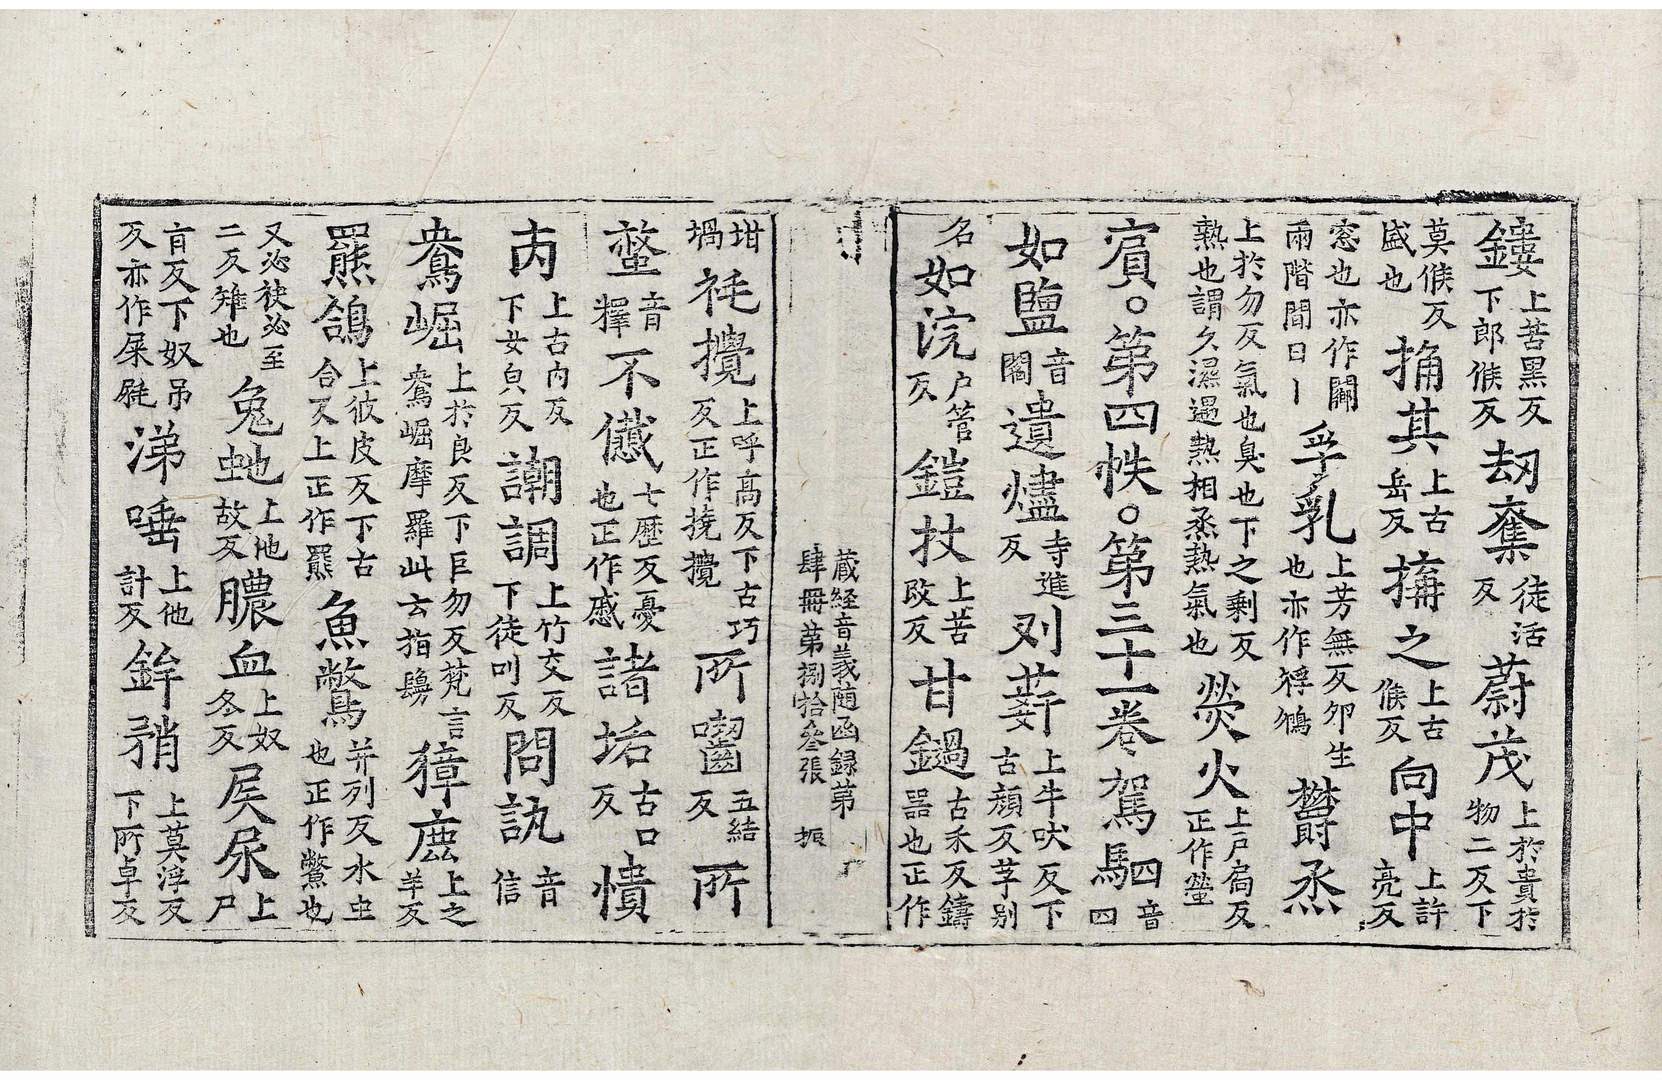 鏤上苦黑反下郎候反刼奪徒活反蔚茂上於貴於物二反下
莫候反盛也捔其上古岳反搆之上古候反向中上許亮反
窓也亦作闢兩階間曰丨孚乳上芳無反卵生也亦作孵㲉欝烝
上於勿反氣也臭也下之剩反熱也謂久濕遇熱相烝熱氣也熒火上戶扃反正作螢
賔。第四帙。第三十一卷駕駟四音四
如鹽音閻遺燼寺進反刈薪上牛吠反下古顔反芓别
名如浣户管反鎧杖上苦改反甘鍋古禾反鑄器也正作
藏経音義随函録第肆冊第捌拾叄張 振
坩堝秏攪上呼高反下古巧反正作撓攪所囓五結反所
螫音釋不慼七歷反憂也正作慼諸垢古口反憒
丙上古內反下女皃反謿調上竹交反下徒叫反問訊音信
鴦崛上於良反下巨勿反梵言鴦崛摩羅此云指鬘獐麃上之羊反
羆鴿上彼皮反下古合反上正作羆魚鷩并列反水虫也正作鱉也
又必袂必至二反雉也兔虵上他故反膿血上奴冬反屎尿上尸
旨反下奴吊反亦作屎𡱁涕唾上他計反鉾矟上莫浮反下所卓反